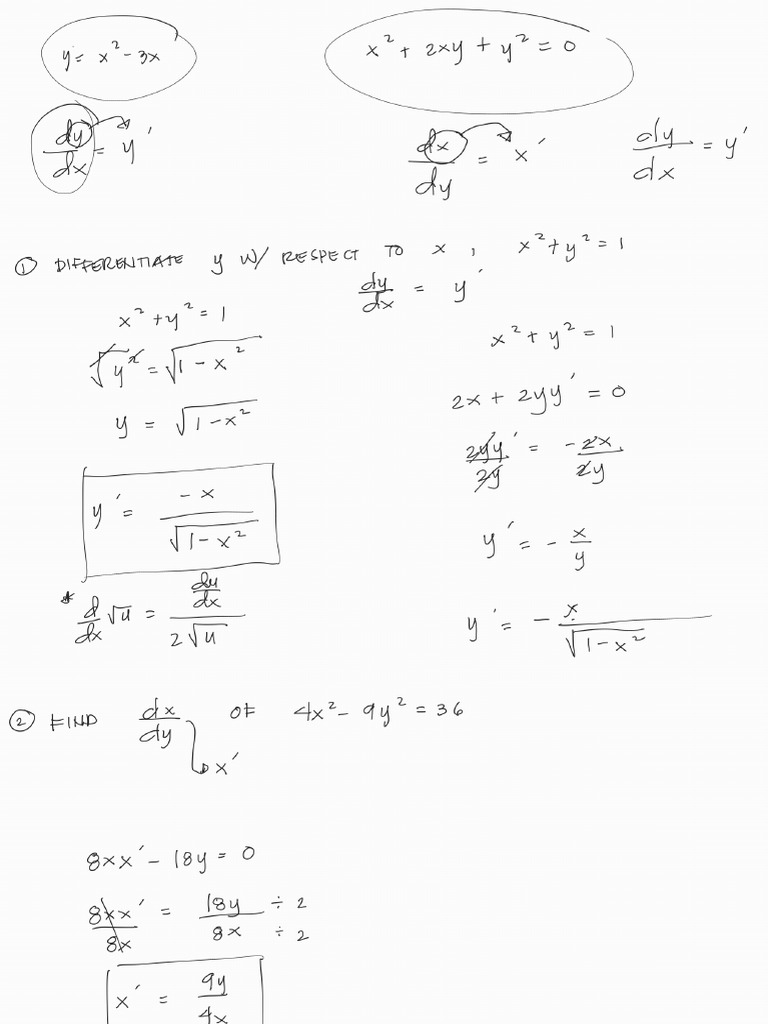 y = x² - 3x
x² + 2xy + y² = 0
dy/dx = y′
dx/dy = x′
dy/dx = y′
① DIFFERENTIATE y W/ RESPECT TO x , x² + y² = 1
dy/dx = y′
x² + y² = 1
√y² = √1 - x²
y = √1 - x²
y′ = -x/√1 - x²
* d/dx √u = du/dx / 2√u
x² + y² = 1
2x + 2yy′ = 0
2yy′/2y = -2x/2y
y′ = - x/y
y′ = - x/√1 - x²
② FIND dx/dy OF 4x² - 9y² = 36
x′
8xx′ - 18y = 0
8xx′/8x = 18y/8x ÷ 2 ÷ 2
x′ = 9y/4x